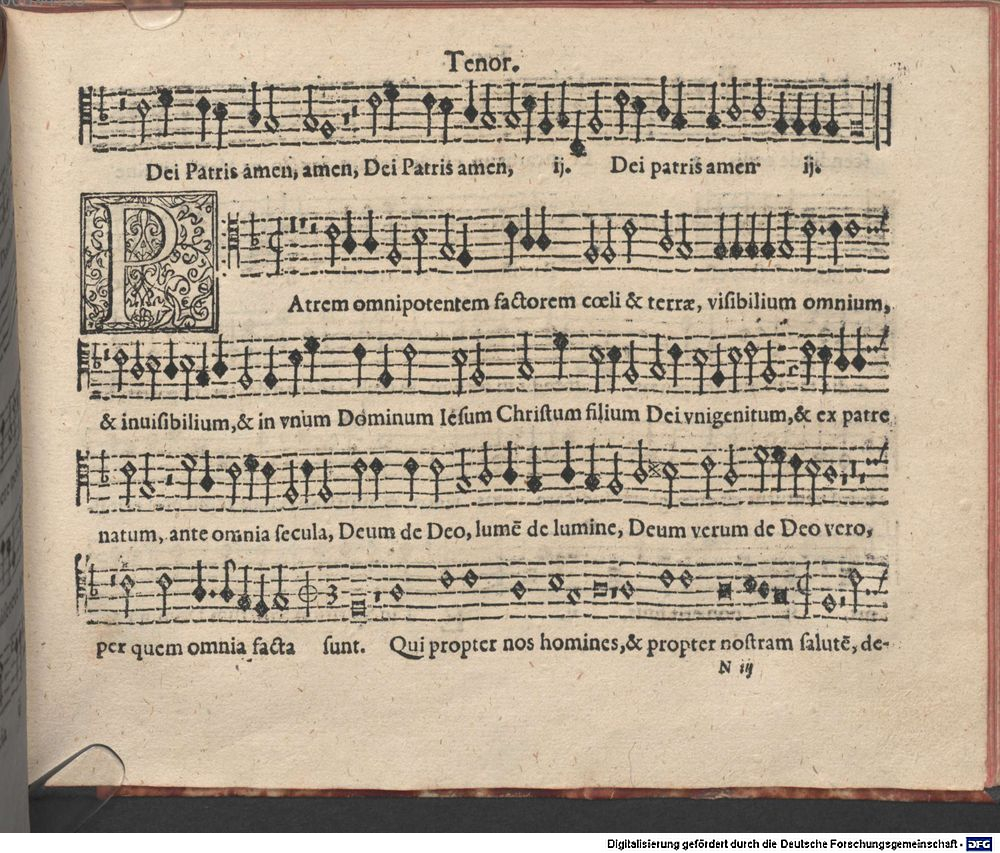 Tenor.
Dei Patris amen, amen, Dei Patris amen, ij. Dei patris amen ij.
PAtrem omnipotentem factorem cœli & terræ, viſibilium omnium,
& inuiſibilium, & in vnum Dominum Ieſum Chriſtum filium Dei vnigenitum, & ex patre
natum, ante omnia ſecula, Deum de Deo, lumē de lumine, Deum verum de Deo vero,
3
per quem omnia facta ſunt. Qui propter nos homines, & propter noſtram ſalutē, de-
N iij
Digitalisierung gefördert durch die Deutsche Forschungsgemeinschaft - DFG